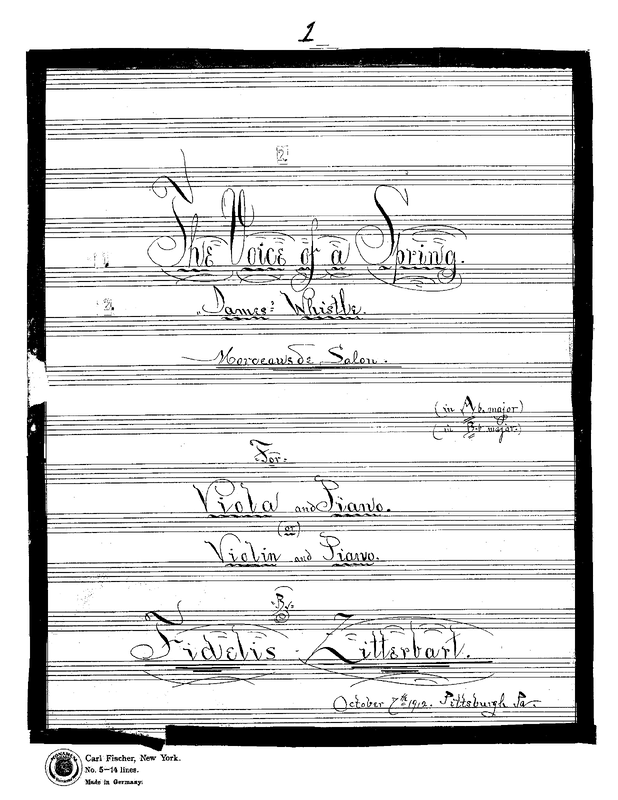 1
2.
The Voice of a Spring.
"Dames" Whistle.
Morceaux de Salon.
(in Ab. major)
(in Bb major.)
For:
Viola and Piano.
(or)
Violin and Piano.
By.
Fidelis Zitterbart.
October 7th 1912. Pittsburgh Pa.
Carl Fischer, New York.
No. 5—14 lines.
Made in Germany.